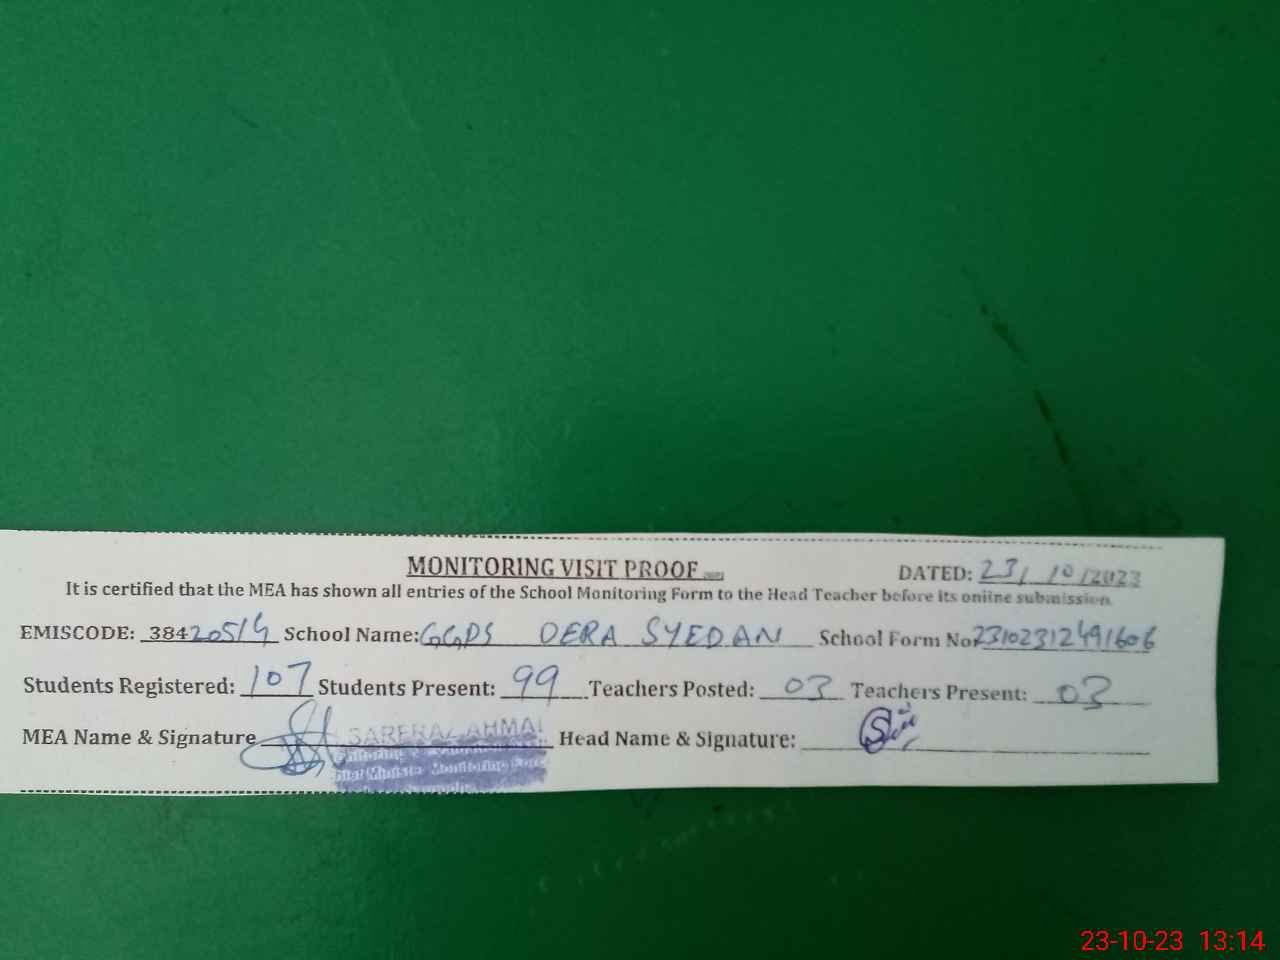 MONITORING VISIT PROOF
DATED: 23/10/2023
It is certified that the MEA has shown all entries of the School Monitoring Form to the Head Teacher before its online submission.
EMISCODE: 38420514 School Name: GGPS DERA SYEDAN School Form No 23102312491606
Students Registered: 107 Students Present: 99 Teachers Posted: 03 Teachers Present: 03
MEA Name & Signature Head Name & Signature:
Monitoring
Minister Monitoring Forc
23-10-23 13:14